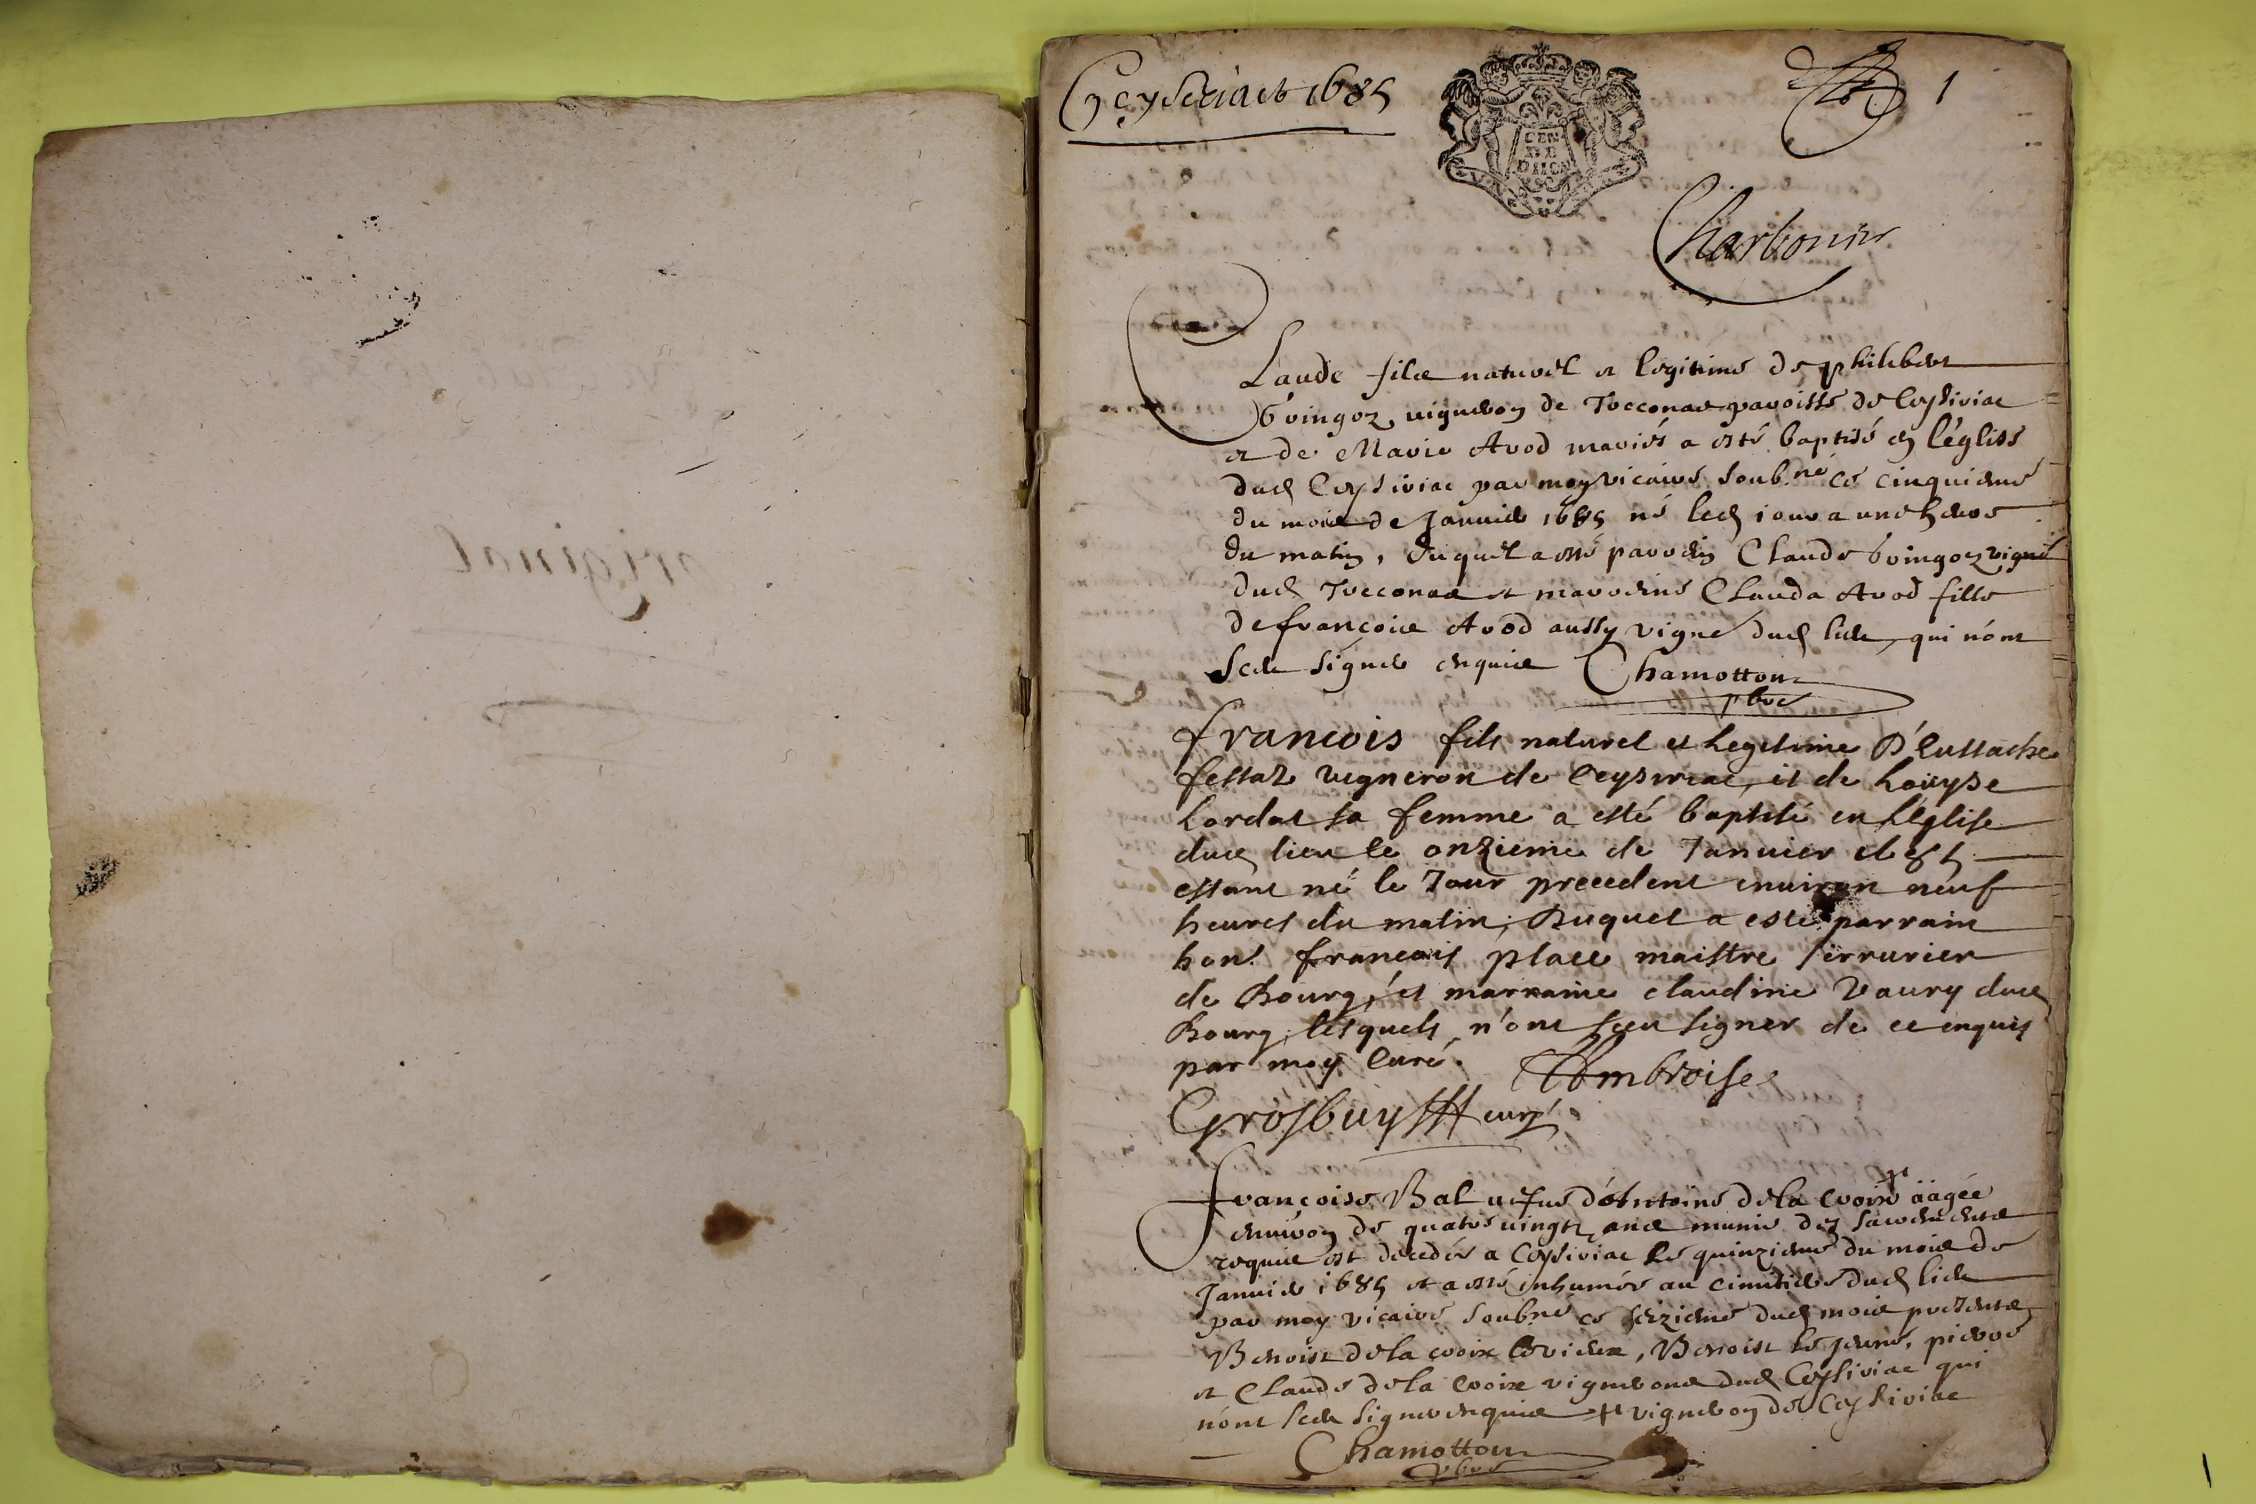 original
Ceyseriat 1685
1
GEN
DE
DIION
Charbonier
Claude fils naturel et legitime de philibert
Goingoz vigneron de Tocconas paroisse de Ceysiriac
et de Marie Avod mariés a esté baptisé en l'église
dud Ceysiriac par moy vicaire soub.né ce cinquieme
du mois de Janvier 1685 né led iour a une heure
du matin, duquel a esté parrein Claude Goingoz vigne
dud Tocconas et marreine Clauda Avod fille
de françois Avod aussy vigne dud lieu, qui n'ont
sceu signer enquis Chamotton
pbre
francois fils naturel et legitime d'Eustache
festaz vigneron de ceysiriac, et de Louyse
Lordat sa femme a esté baptisé en L'église
dud lieu le onzieme de Januier
estant né le Jour precedent enuiron neuf
heures du matin; Duquel a este parrain
hon. francois place maistre serrurier
de Bourg, et marraine claudine Vaury dud
Bourg, lesquels n'ont sceu signer de ce enquis
par moy Curé. Ambroise
Grosbuys curé
Françoise Bal vefue d'Antoine dela croix # aagée
enuiron de quatre uingtz ans munie des sacrements
requis est decedée a Ceysiriac le quinzieme du mois de
Januier 1685 et a esté inhumée au cimetiere dud lieu
par moy vicaire soubné ce seizieme dud mois presents
Benoist dela croix le vieux, Benoist le Jeune, pierre
et Claude dela croix vignerons dud Ceysiriac qui
n'ont sceu signer enquis # vigneron de Ceysiriac
Chamotton
pbre